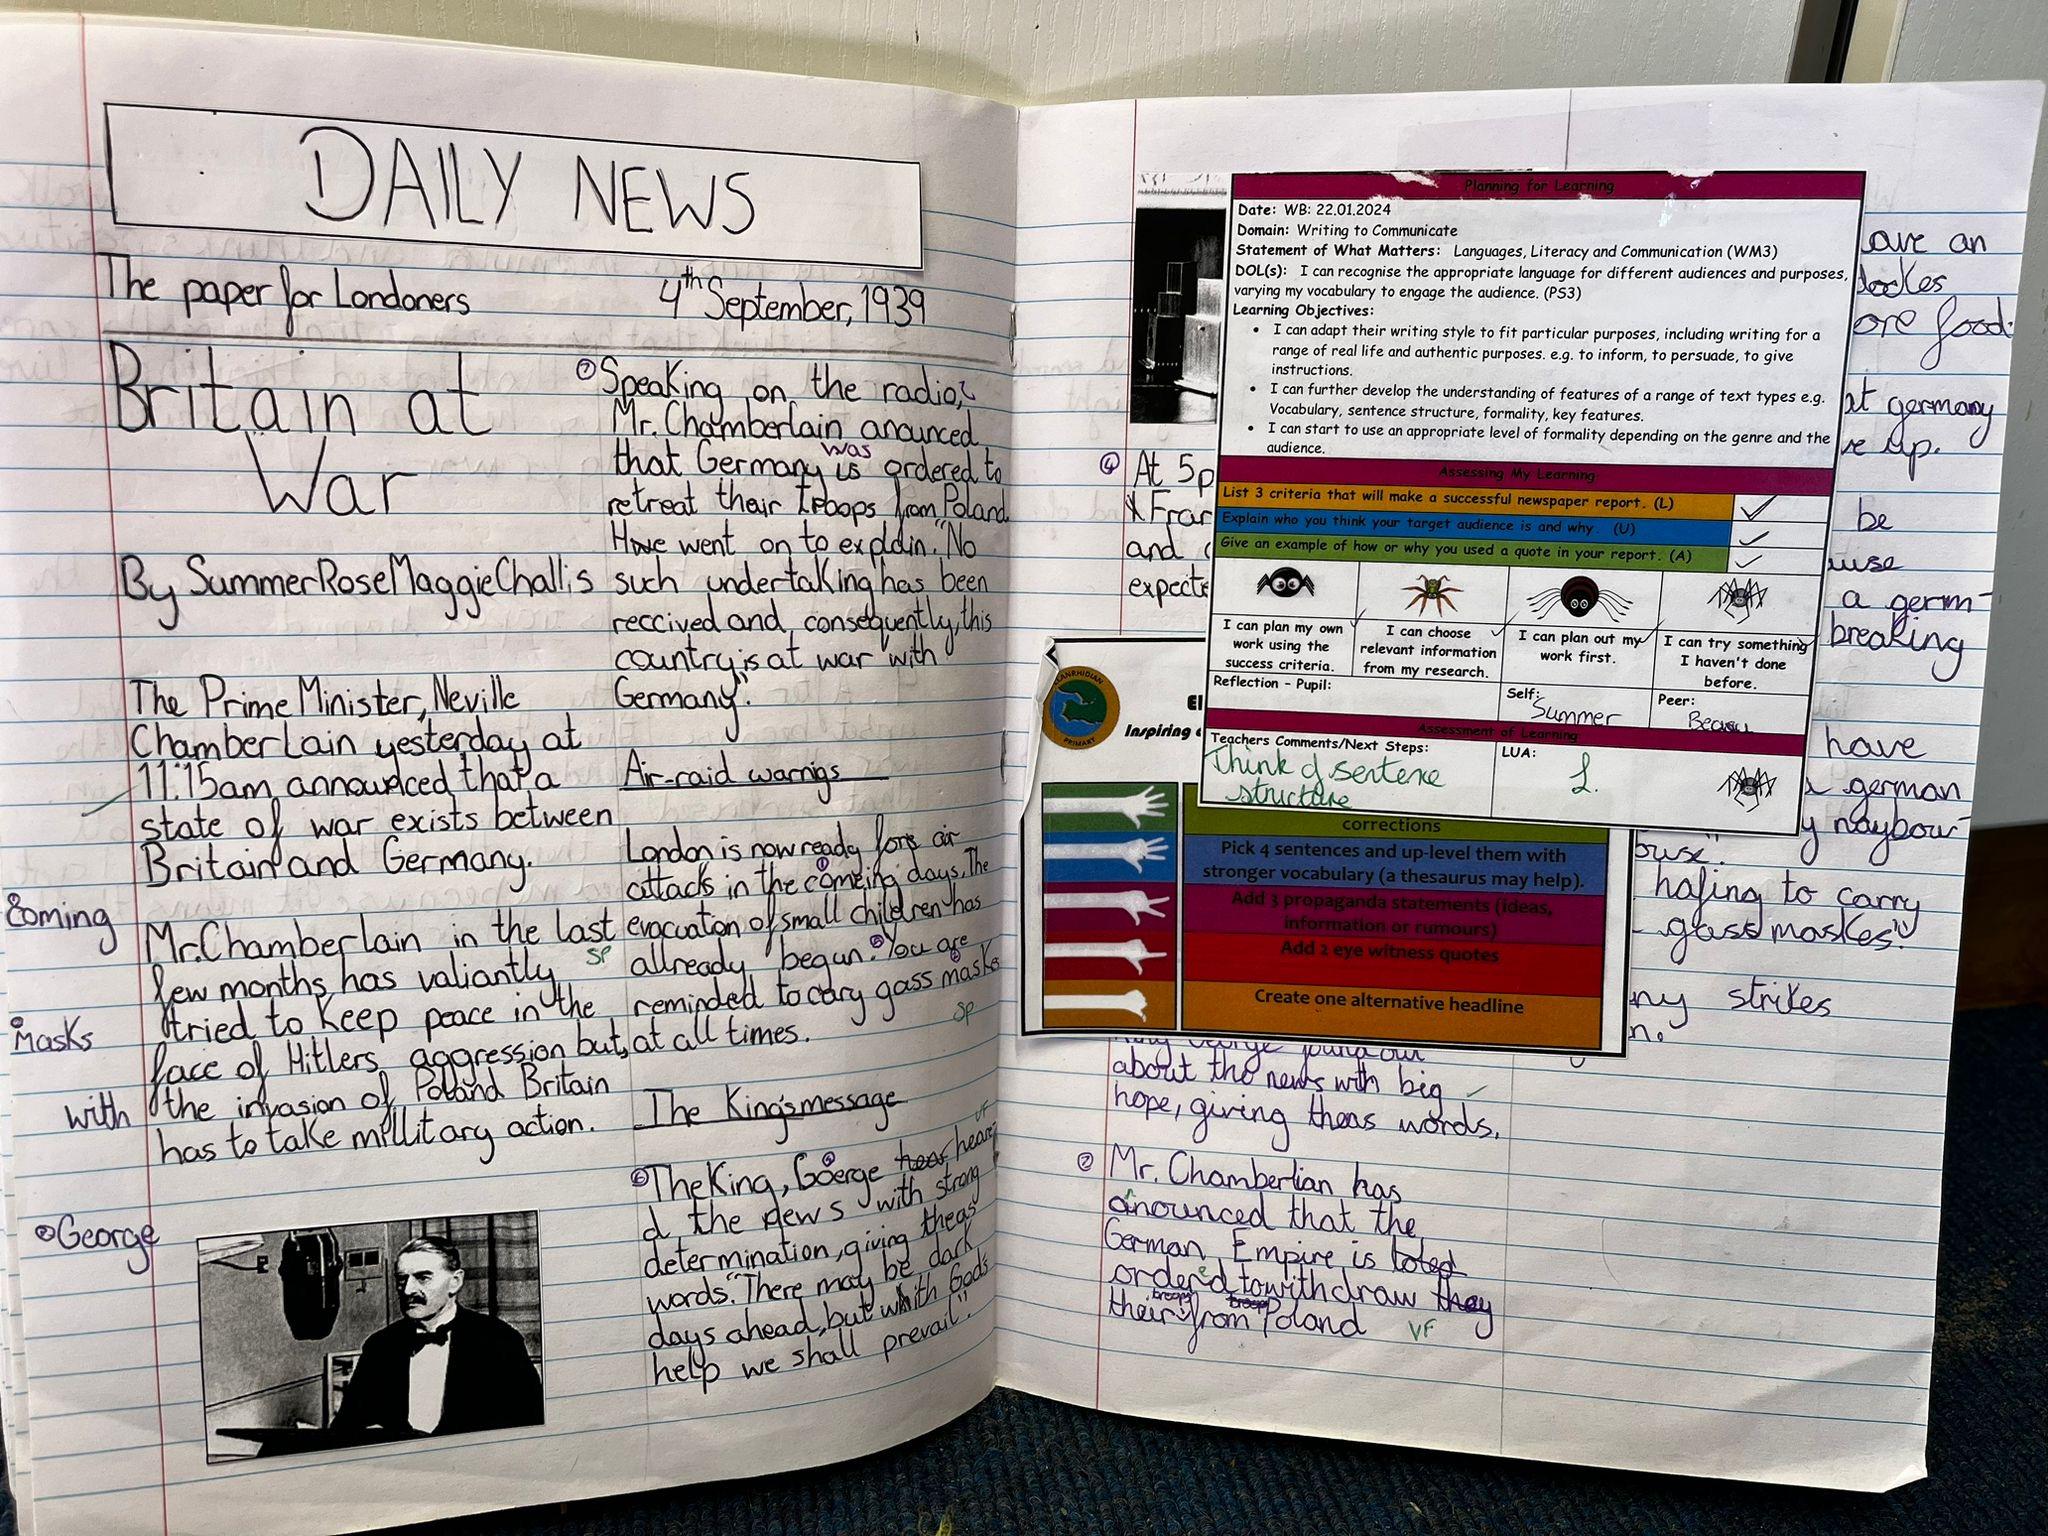 DAILY NEWS
The paper for Londoners
4th September, 1939
Britain at
War
By SummerRoseMaggieChallis
The Prime Minister, Neville
Chamberlain yesterday at
11:15am announced that a
state of war exists between
Britain and Germany.
Mr. Chamberlain in the last
few months has valiantly
tried to keep peace in the
face of Hitlers aggression but,
the invasion of Poland Britain
has to take millitary action.
coming
masks
with
George
Speaking on the radio,
Mr. Chamberlain anounced
was
that Germany is ordered to
retreat their troops from Poland
He went on to explain. "No
such undertaking has been
reccived and, consequently, this
country is at war with
Germany".
Air-raid warnigs
London is now ready for air
attacks in the comeing days. The
evacuation of small children has
sp
allready begun. You are
reminded to cary gass masks
sp
at all times.
The King's message
VF
The King, Goerge hear hear
d, the news with strong
determination, giving theas
words. "There may be dark
days ahead, but with Gods
help we shall prevail".
At 5p
and
expecte
about the news with big
hope, giving theas words.
Mr. Chamberlian has
anounced that the
German Empire is
ordered to withdraw they
their troops from Poland
VF
Planning for Learning
Date: WB: 22.01.2024
Domain: Writing to Communicate
Statement of What Matters: Languages, Literacy and Communication (WM3)
DOL(s): I can recognise the appropriate language for different audiences and purposes,
varying my vocabulary to engage the audience. (PS3)
Learning Objectives:
• I can adapt their writing style to fit particular purposes, including writing for a
range of real life and authentic purposes. e.g. to inform, to persuade, to give
instructions.
• I can further develop the understanding of features of a range of text types e.g.
Vocabulary, sentence structure, formality, key features.
• I can start to use an appropriate level of formality depending on the genre and the
audience.
Assessing My Learning
List 3 criteria that will make a successful newspaper report. (L)
Explain who you think your target audience is and why. (U)
Give an example of how or why you used a quote in your report. (A)
I can plan my own
work using the
success criteria.
I can choose
relevant information
from my research.
I can plan out my
work first.
I can try something
I haven't done
before.
Reflection - Pupil:
Self:
Summer
Peer:
Assessment of Learning
Teachers Comments/Next Steps:
Think of sentence
structure
LUA:
L.
LLANRHIDIAN
PRIMARY
El
Inspiring
corrections
Pick 4 sentences and up-level them with
stronger vocabulary (a thesaurus may help).
Add 3 propaganda statements (ideas,
information or rumours)
Add 2 eye witness quotes
Create one alternative headline
ave an
ore food.
at germany
ve up.
be
a germ-
breaking
have
german
y naybour
hafing to carry
gass maskes"
ny strikes